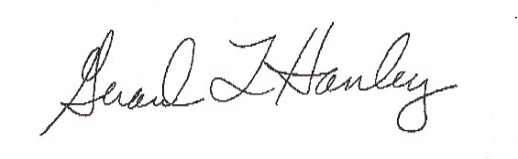 Gerard L Hanley